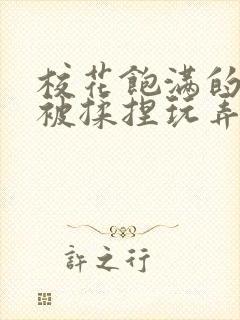 校花飽满的
被揉捏玩弄
許之行